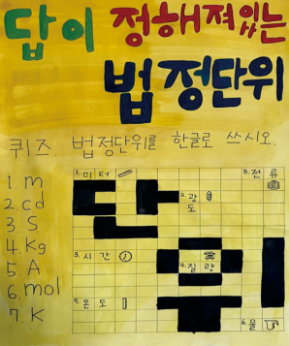 답이 정해져있는
법정단위
퀴즈. 법정단위를 한글로 쓰시오.
1. m
2. cd
3. S
4. Kg
5. A
6. mol
7. K
1. 미터
5. 전류
2. 광도
3. 시간
4. 질량
2. 온도
6. 몰
단위